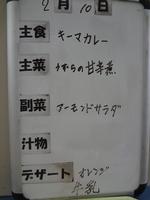 2月10日
主食 キーマカレー
主菜 うずらの甘辛煮
副菜 アーモンドサラダ
汁物
デザート オレンジ
牛乳